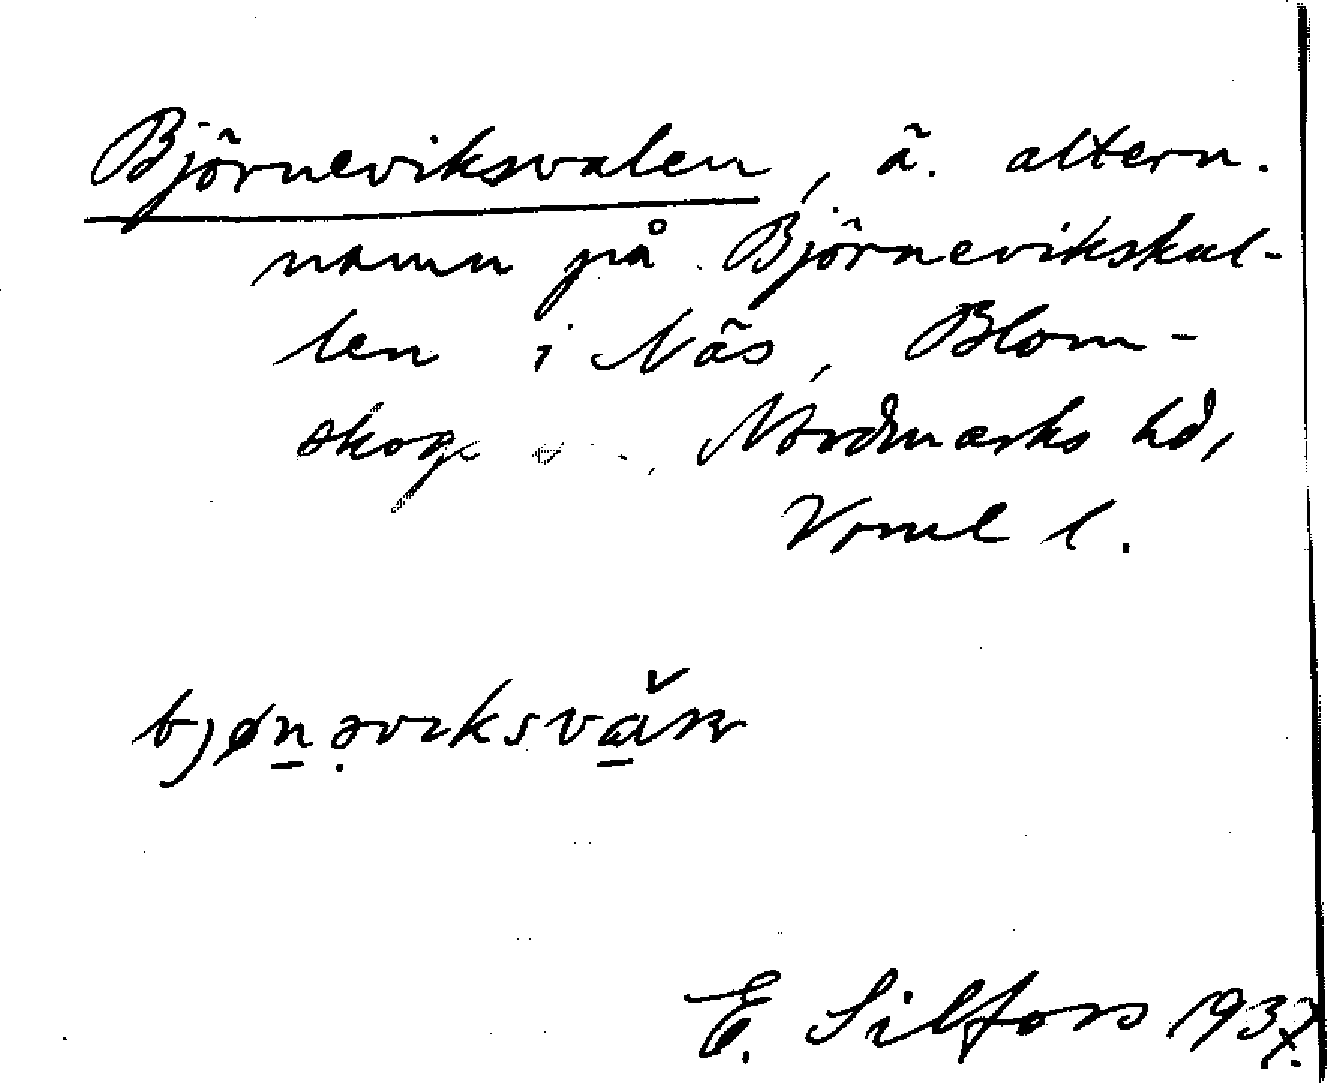 Björneviksvalen, ä. altern.
namn på Björnevikskul-
len i Näs, Blom-
skog Nordmarks hd,
Vrml l.
E. Silfors 1937.